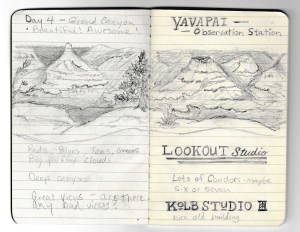 Day 4 - Grand Canyon
Beautiful! Awesome!
Reds, Blues, Tans, Greens
Big puffy clouds
Deep canyons
Great views - are there
any bad views?
YAVAPAI -
- Observation Station
LOOKOUT Studio
Lots of Condors - maybe
six or seven
KOLB STUDIO
nice old building